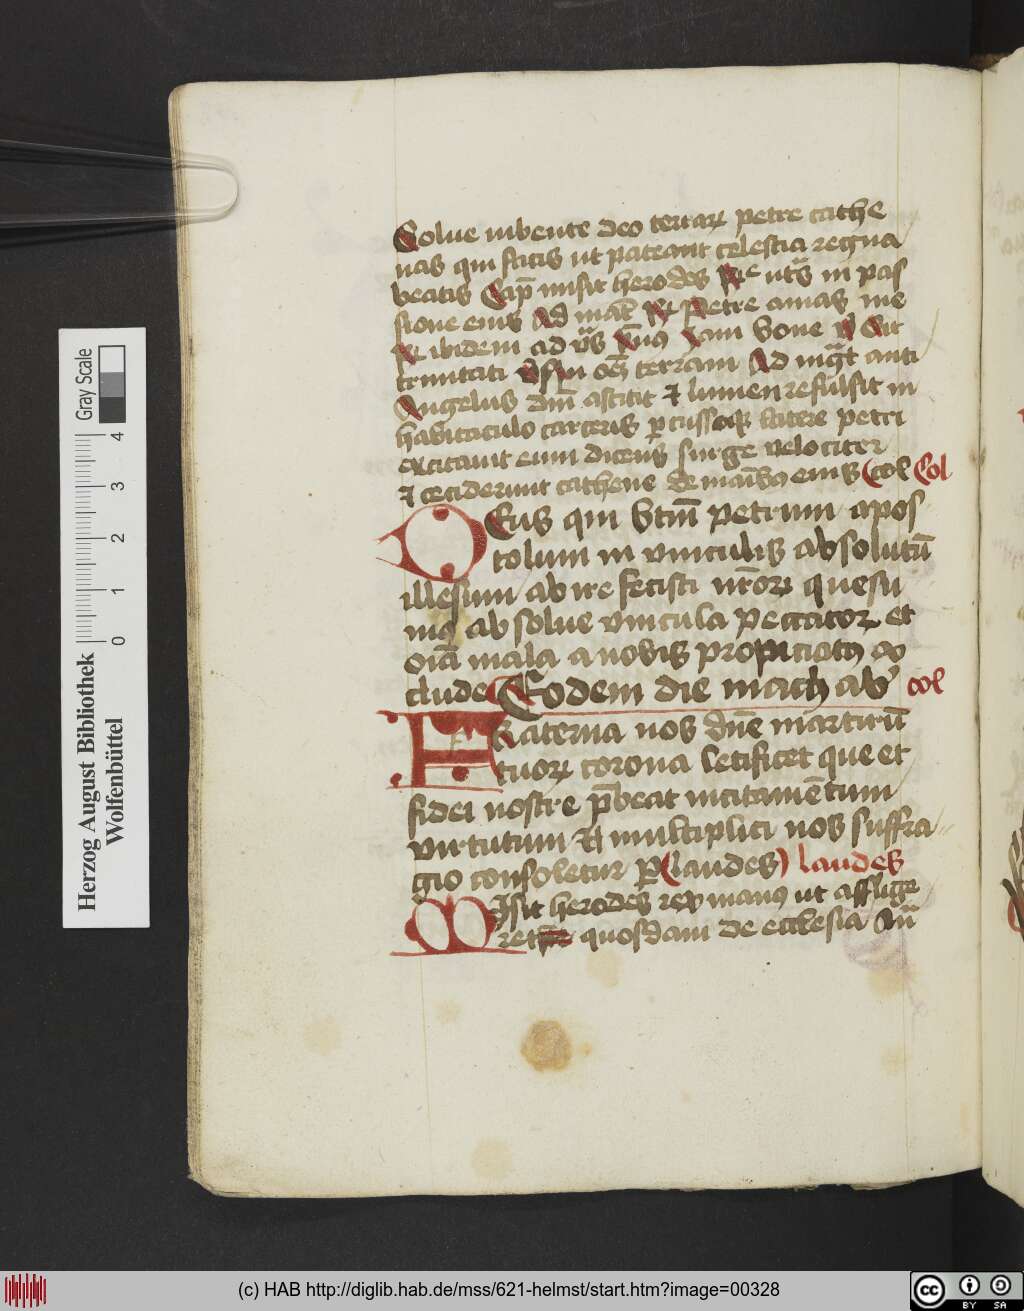 Solue iubente deo terrarꝝ petre cathe
nas qui facis ut pateant celestia regna
beatis Cap̅ misit herodes ut̉s in pas
sione eius Ad mat̅ Petre amas me
ibidem ad v̉s Iam bone Sit
trinitati oēs terram Ad mg̅t anti
Angelus dn̅i astitit ⁊ lumen refulsit in
habitaculo carceris ꝑcussoqꝫ latere petri
excitauit eum dicens surge velociter
⁊ ceciderunt cathene de manibꝫ eius (col Col
DEus qui btm̅ petrum apos
tolum in vinculis absolutū
illesum abire fecisti nr̅orꝝ quesu
mꝰ absolue vincula peccatorꝝ et
oīa mala a nobis propiciatꝰ ex
clude Eodem die mach ab' col
FRaterna nos dn̄e martirū
tuorꝝ corona letificet que et
fidei nostre p̅beat incitamētum
virtutum Et multiplici nos suffra
gio consoletur ꝑ (laudes) laudes
MIsit herodes rex manꝰ ut affligeret
quosdam de ecclesia An̄
Herzog August Bibliothek
Wolfenbüttel
0 1 2 3 4
Gray Scale
(c) HAB http://diglib.hab.de/mss/621-helmst/start.htm?image=00328
cc BY SA